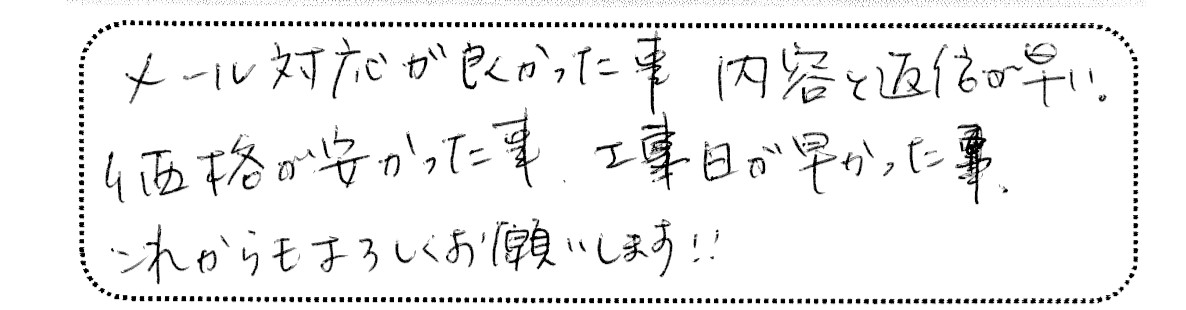 メール対応が良かった事 内容と返信が早い。
価格が安かった事、工事日が早かった事、
これからもよろしくお願いします!!